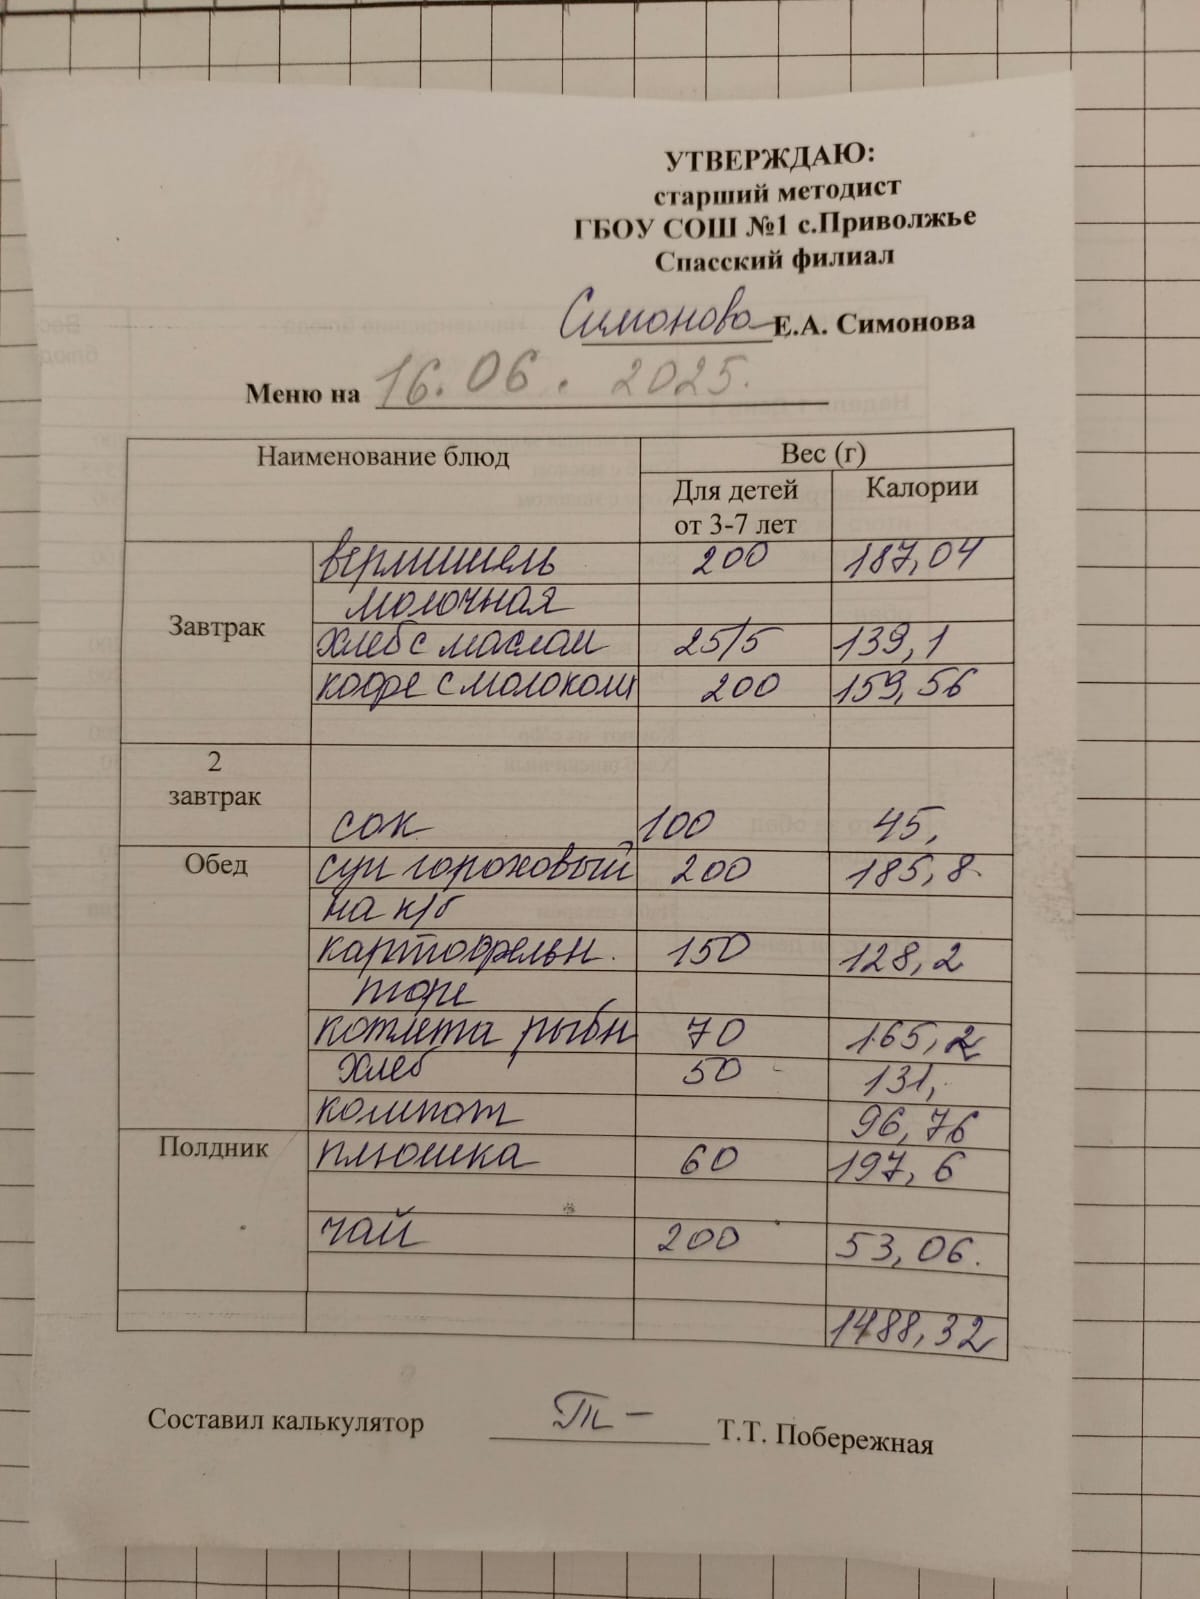 УТВЕРЖДАЮ:
старший методист
ГБОУ СОШ №1 с.Приволжье
Спасский филиал
Симонова Е.А. Симонова
Меню на 16.06. 2025.
Наименование блюд Вес (г)
Для детей от 3-7 лет Калории
Завтрак
вермишель 200 187,04
молочная
хлеб с маслом 25/5 139,1
кофе с молоком 200 159,56
2 завтрак
сок 100 45,
Обед суп гороховый 200 185,8
на к/б
картофельн. 150 128,2
пюре
котлета рыбн 70 165,2
хлеб 50 131,
компот 96,76
Полдник плюшка 60 197,6
чай 200 53,06.
1488,32
Составил калькулятор Т.Т. Побережная